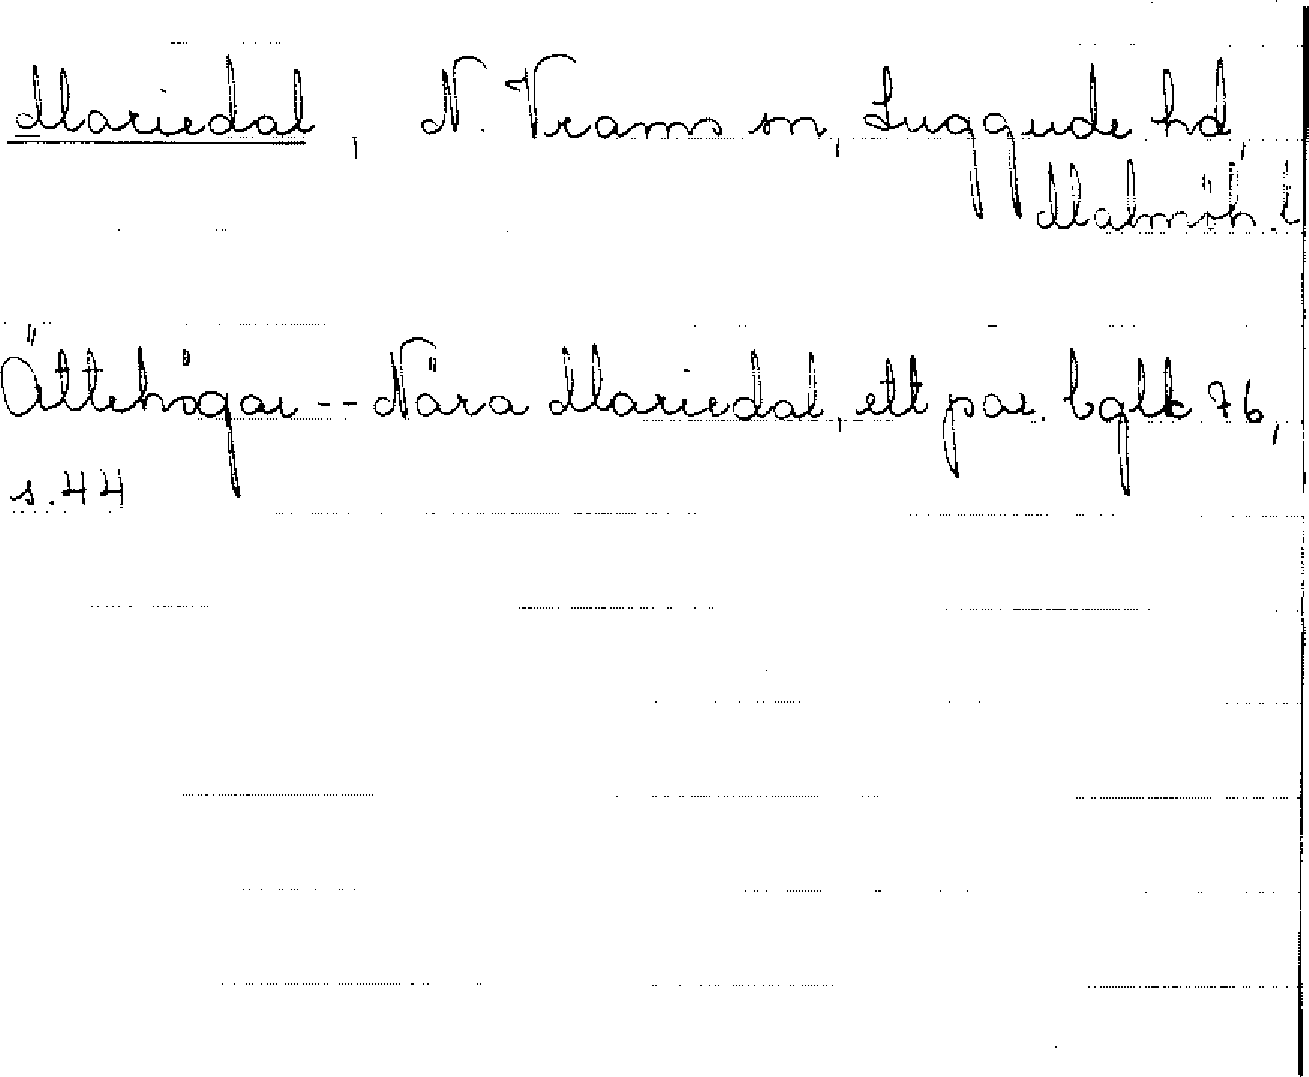 Mariedal, N. Vrams sn, Luggude hd,
Malmöh. l
Ättehögar -- Nära Mariedal, ett par. bglk 76,
s. 44